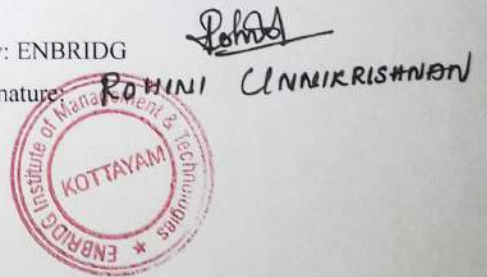 : ENBRIDG
nature: ROHINI UNNIKRISHNAN
ENBRIDG Institute of Management & Technologies
KOTTAYAM